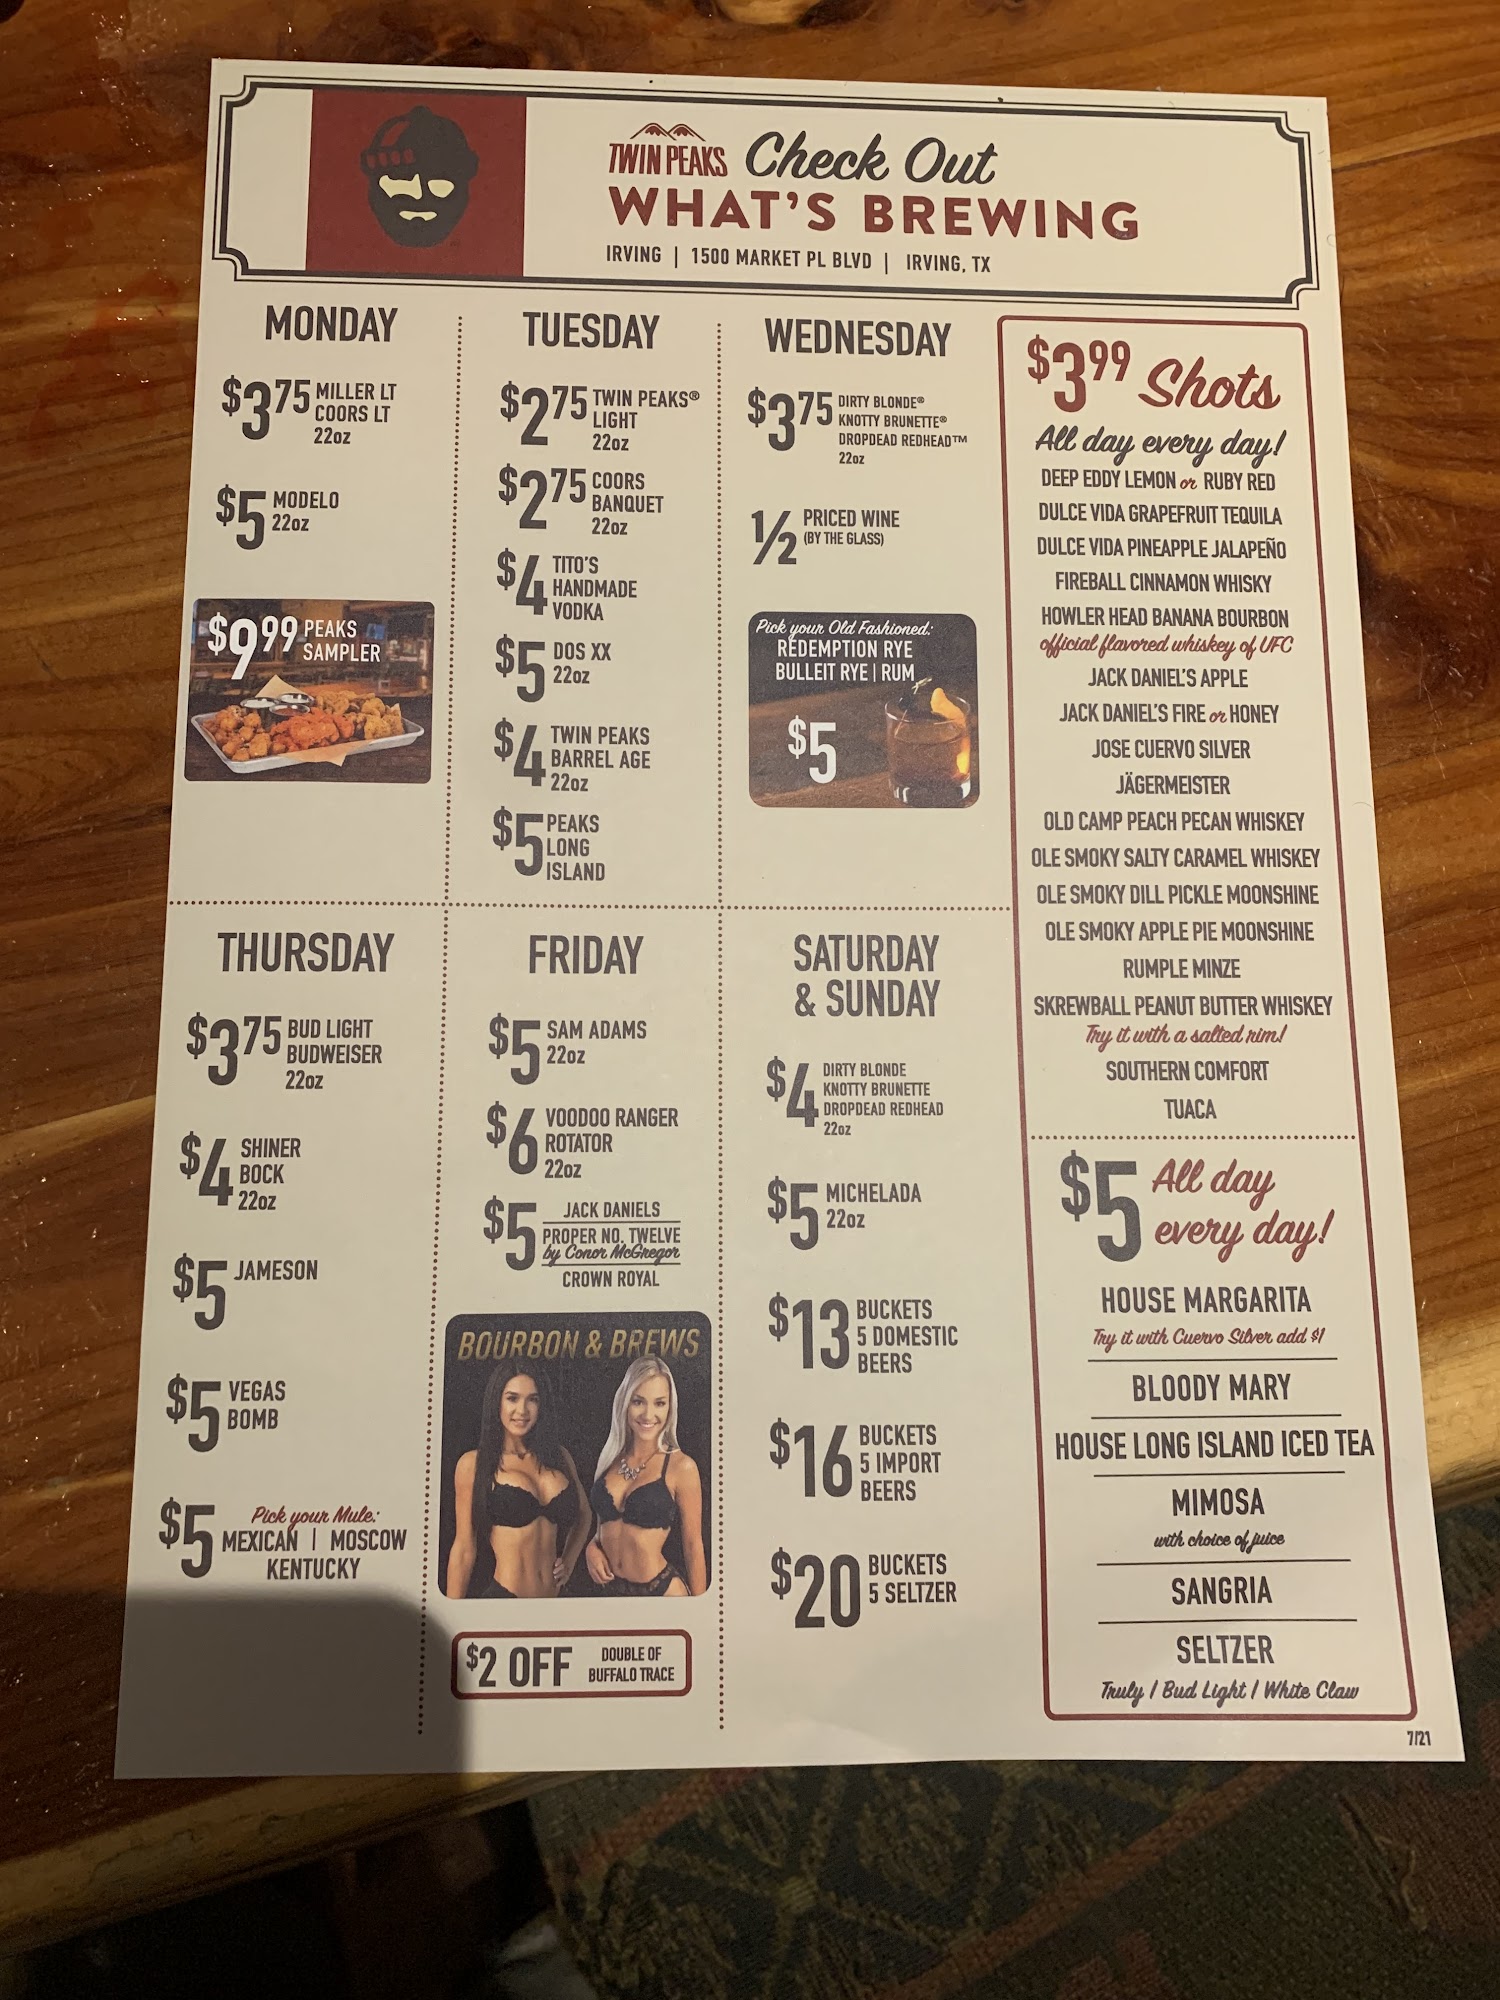 TWIN PEAKS Check Out
WHAT'S BREWING
IRVING | 1500 MARKET PL BLVD | IRVING, TX
MONDAY
$3.75 MILLER LT
COORS LT
22oz
$5 MODELO
22oz
$9.99 PEAKS
SAMPLER
TUESDAY
$2.75 TWIN PEAKS®
LIGHT
22oz
$2.75 COORS
BANQUET
22oz
$4 TITO'S
HANDMADE
VODKA
$5 DOS XX
22oz
$4 TWIN PEAKS
BARREL AGE
22oz
$5 PEAKS
LONG
ISLAND
WEDNESDAY
$3.75 DIRTY BLONDE®
KNOTTY BRUNETTE®
DROPDEAD REDHEAD™
22oz
½ PRICED WINE
(BY THE GLASS)
Pick your Old Fashioned:
REDEMPTION RYE
BULLEIT RYE | RUM
$5
THURSDAY
$3.75 BUD LIGHT
BUDWEISER
22oz
$4 SHINER
BOCK
22oz
$5 JAMESON
$5 VEGAS
BOMB
$5 Pick your Mule:
MEXICAN | MOSCOW
KENTUCKY
FRIDAY
$5 SAM ADAMS
22oz
$6 VOODOO RANGER
ROTATOR
22oz
$5 JACK DANIELS
PROPER NO. TWELVE
by Conor McGregor
CROWN ROYAL
BOURBON & BREWS
$2 OFF DOUBLE OF
BUFFALO TRACE
SATURDAY
& SUNDAY
$4 DIRTY BLONDE
KNOTTY BRUNETTE
DROPDEAD REDHEAD
22oz
$5 MICHELADA
22oz
$13 BUCKETS
5 DOMESTIC
BEERS
$16 BUCKETS
5 IMPORT
BEERS
$20 BUCKETS
5 SELTZER
$3.99 Shots
All day every day!
DEEP EDDY LEMON or RUBY RED
DULCE VIDA GRAPEFRUIT TEQUILA
DULCE VIDA PINEAPPLE JALAPEÑO
FIREBALL CINNAMON WHISKY
HOWLER HEAD BANANA BOURBON
official flavored whiskey of UFC
JACK DANIEL'S APPLE
JACK DANIEL'S FIRE or HONEY
JOSE CUERVO SILVER
JÄGERMEISTER
OLD CAMP PEACH PECAN WHISKEY
OLE SMOKY SALTY CARAMEL WHISKEY
OLE SMOKY DILL PICKLE MOONSHINE
OLE SMOKY APPLE PIE MOONSHINE
RUMPLE MINZE
SKREWBALL PEANUT BUTTER WHISKEY
Try it with a salted rim!
SOUTHERN COMFORT
TUACA
$5 All day
every day!
HOUSE MARGARITA
Try it with Cuervo Silver add $1
BLOODY MARY
HOUSE LONG ISLAND ICED TEA
MIMOSA
with choice of juice
SANGRIA
SELTZER
Truly / Bud Light / White Claw
7/21